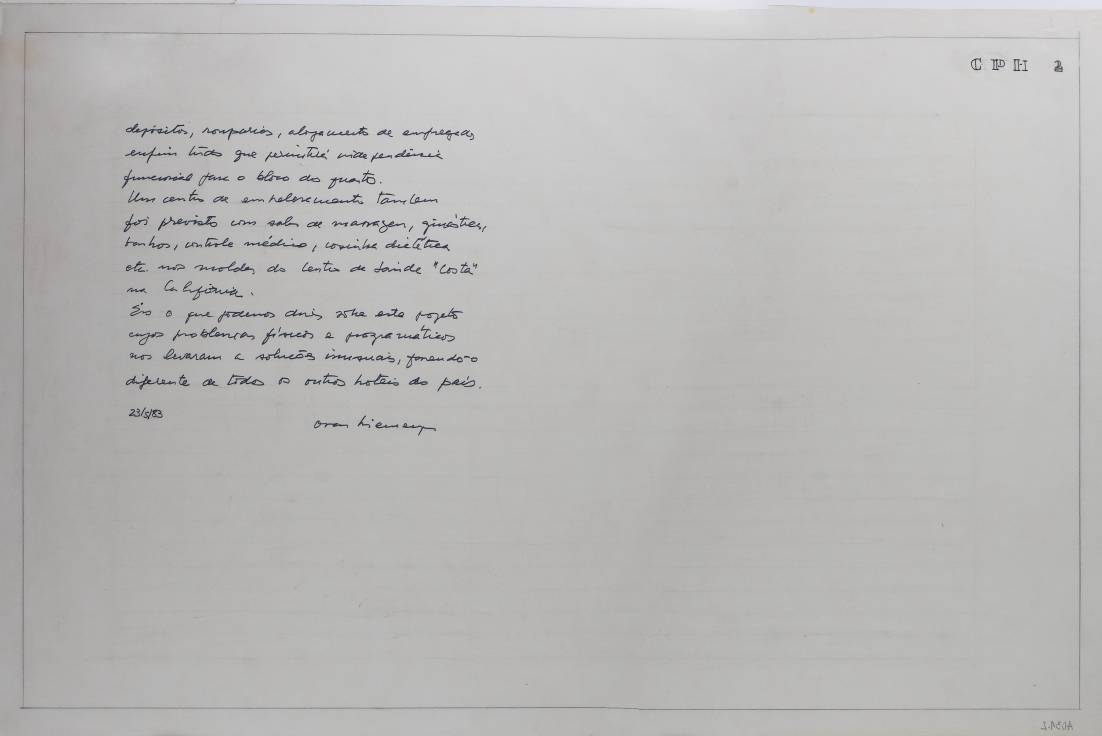 CPH 2
depósitos, rouparias, alojamento de empregados
enfim tudo que permitirá independência
funcional para o bloco do quarto.
Um centro de embelezamento tambem
foi previsto com salas de massagem, ginástica,
banhos, controle médico, cosinha dietética
etc. nos moldes do Centro de Saúde "Costa"
na California.
Eis o que podemos dizer sobre este projeto
cujos problemas físicos e programáticos
nos levaram a soluções inusuais, fazendo-o
diferente de todos os outros hoteis do país.
23/5/83
Oscar Niemeyer